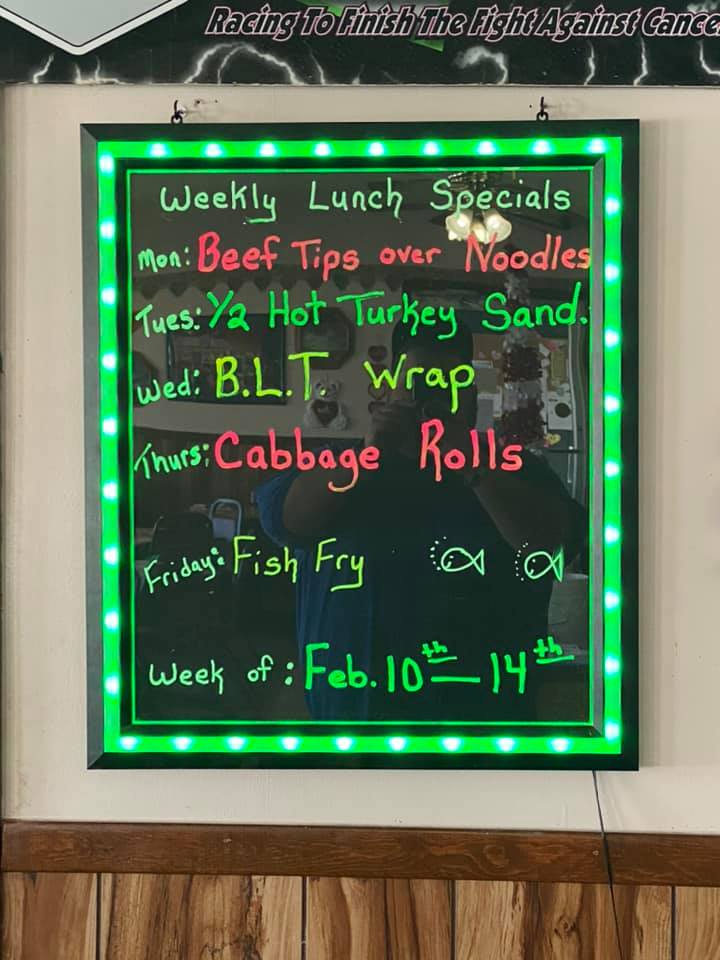 Racing To Finish The Fight Against Cancer
Weekly Lunch Specials
Mon: Beef Tips over Noodles
Tues: 1/2 Hot Turkey Sand.
Wed: B.L.T. Wrap
Thurs: Cabbage Rolls
Friday: Fish Fry
Week of: Feb. 10th - 14th